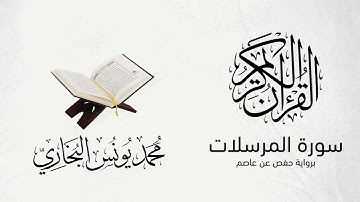 القرآن الكريم
سورة المرسلات
برواية حفص عن عاصم
محمد يونس البخاري